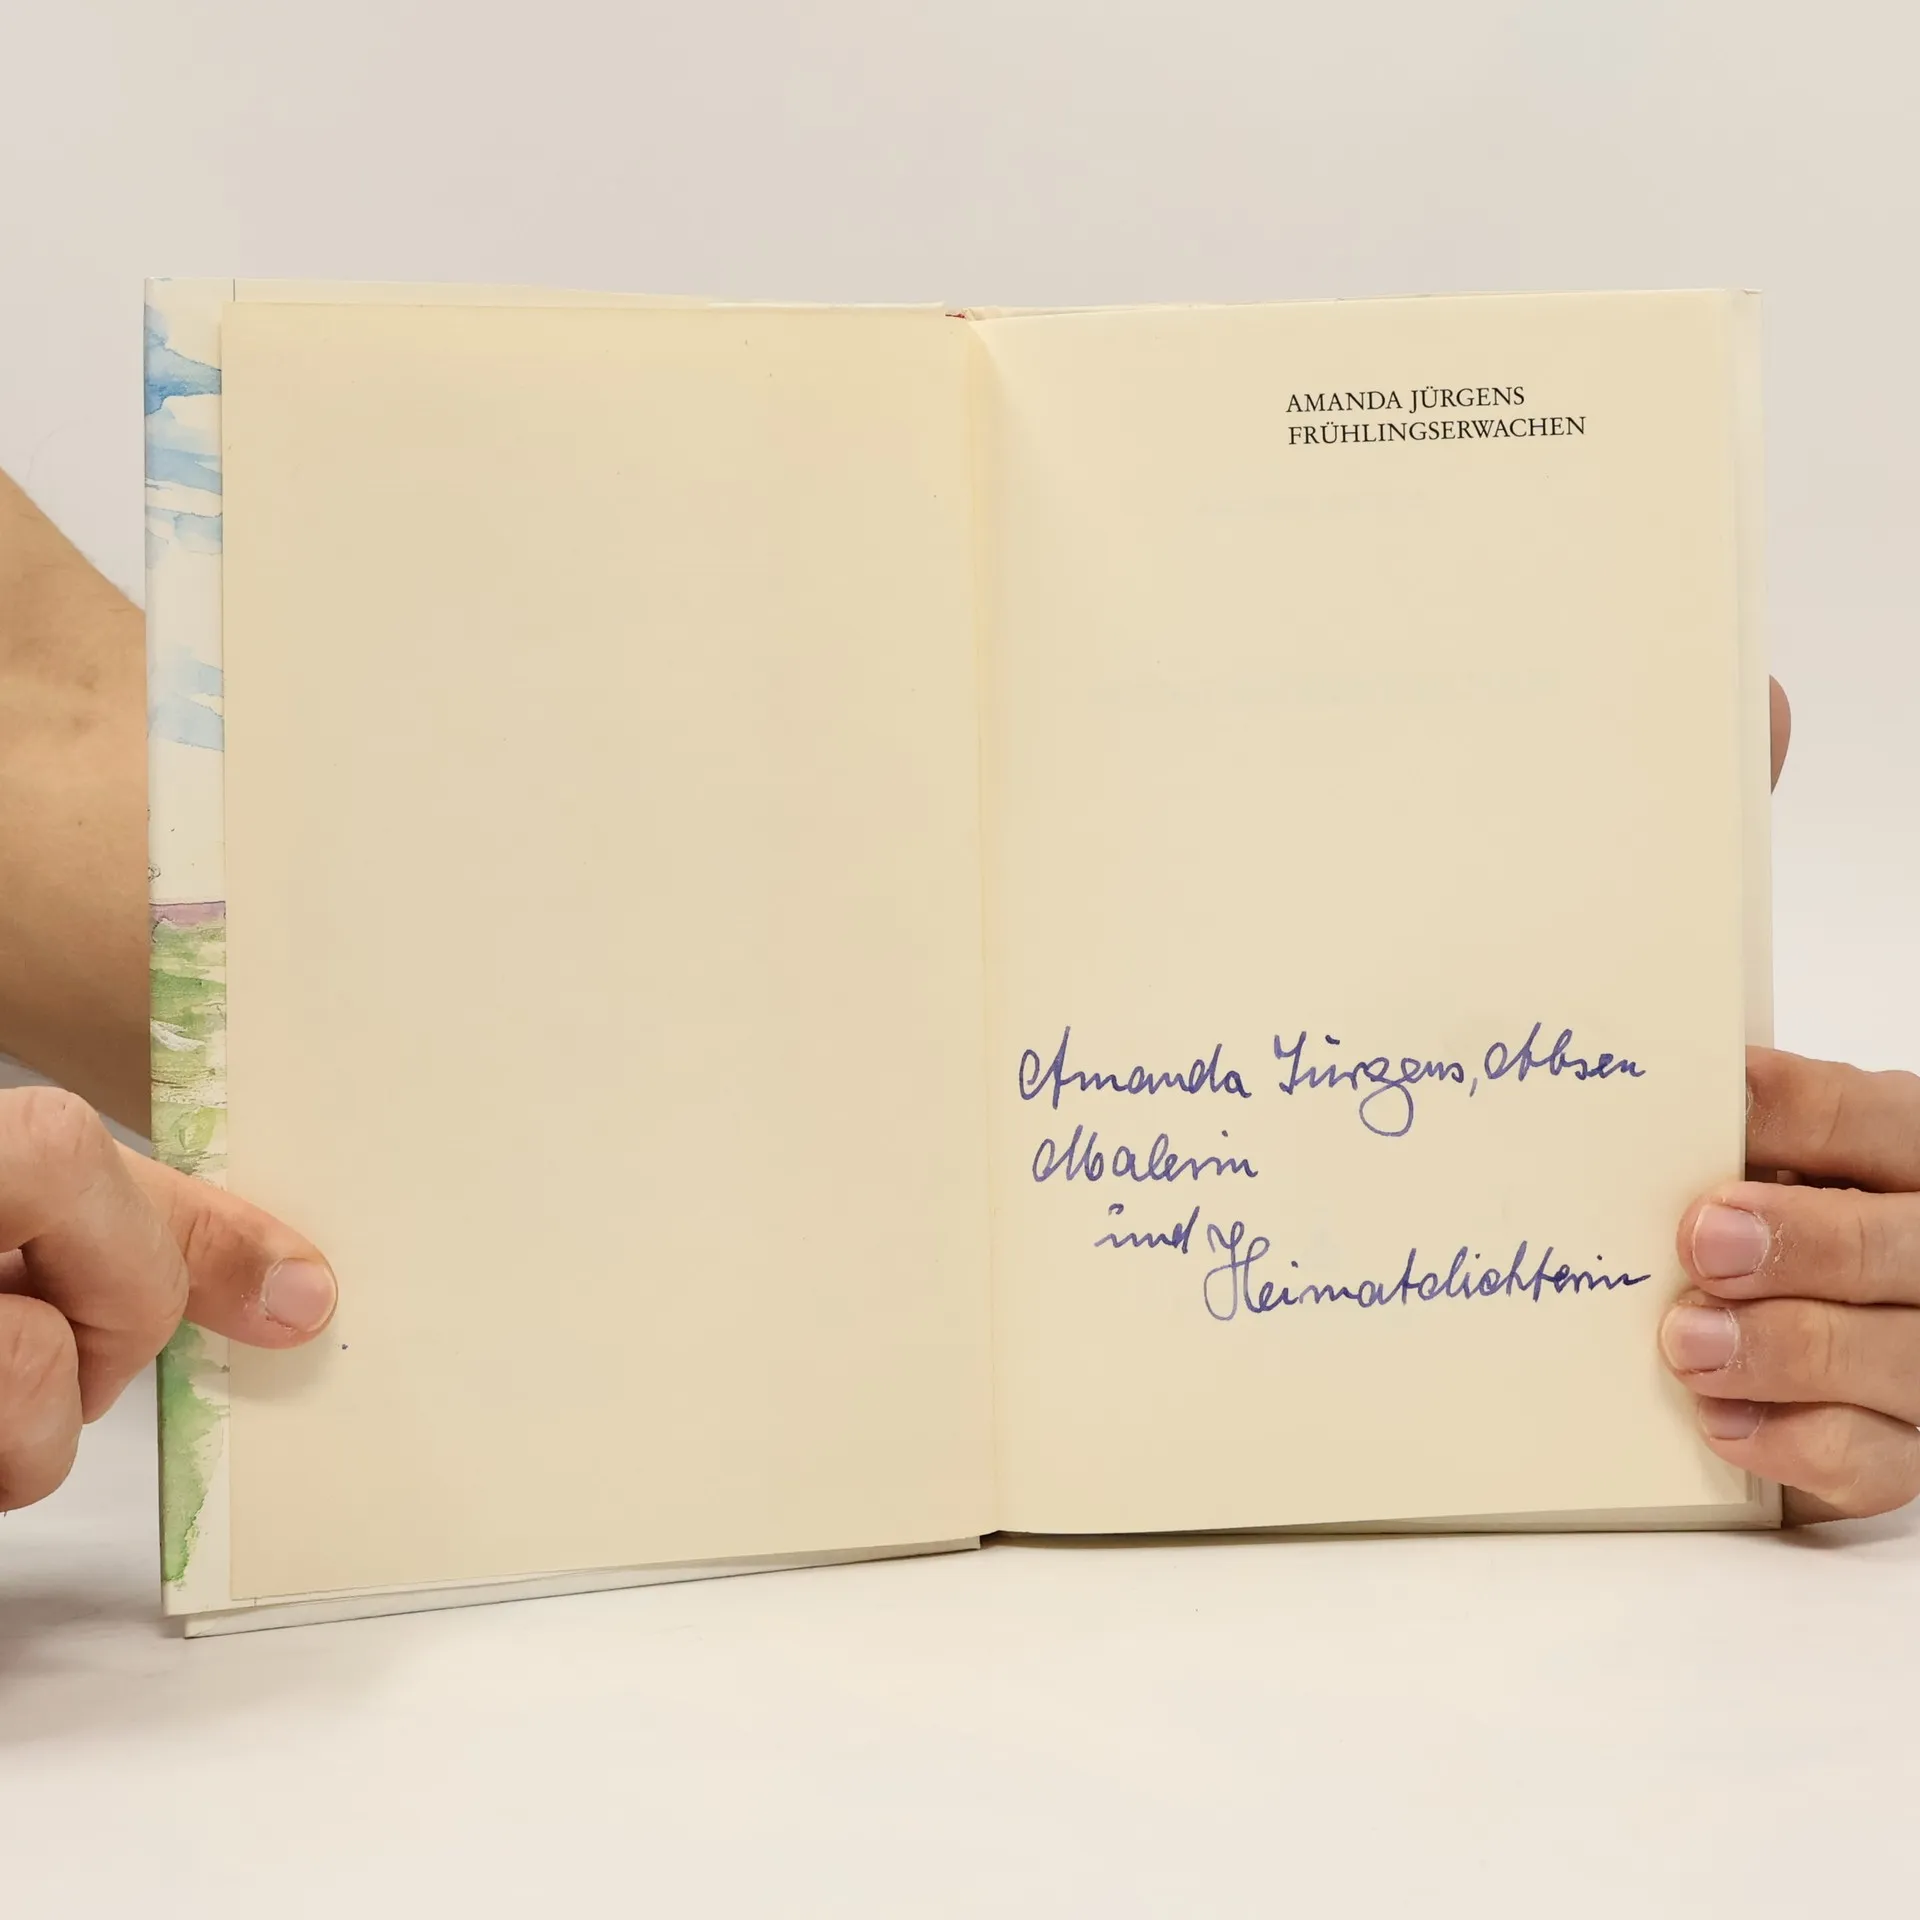 AMANDA JÜRGENS
FRÜHLINGSERWACHEN
Amanda Jürgens, Absen
Malerin
und Heimatdichterin